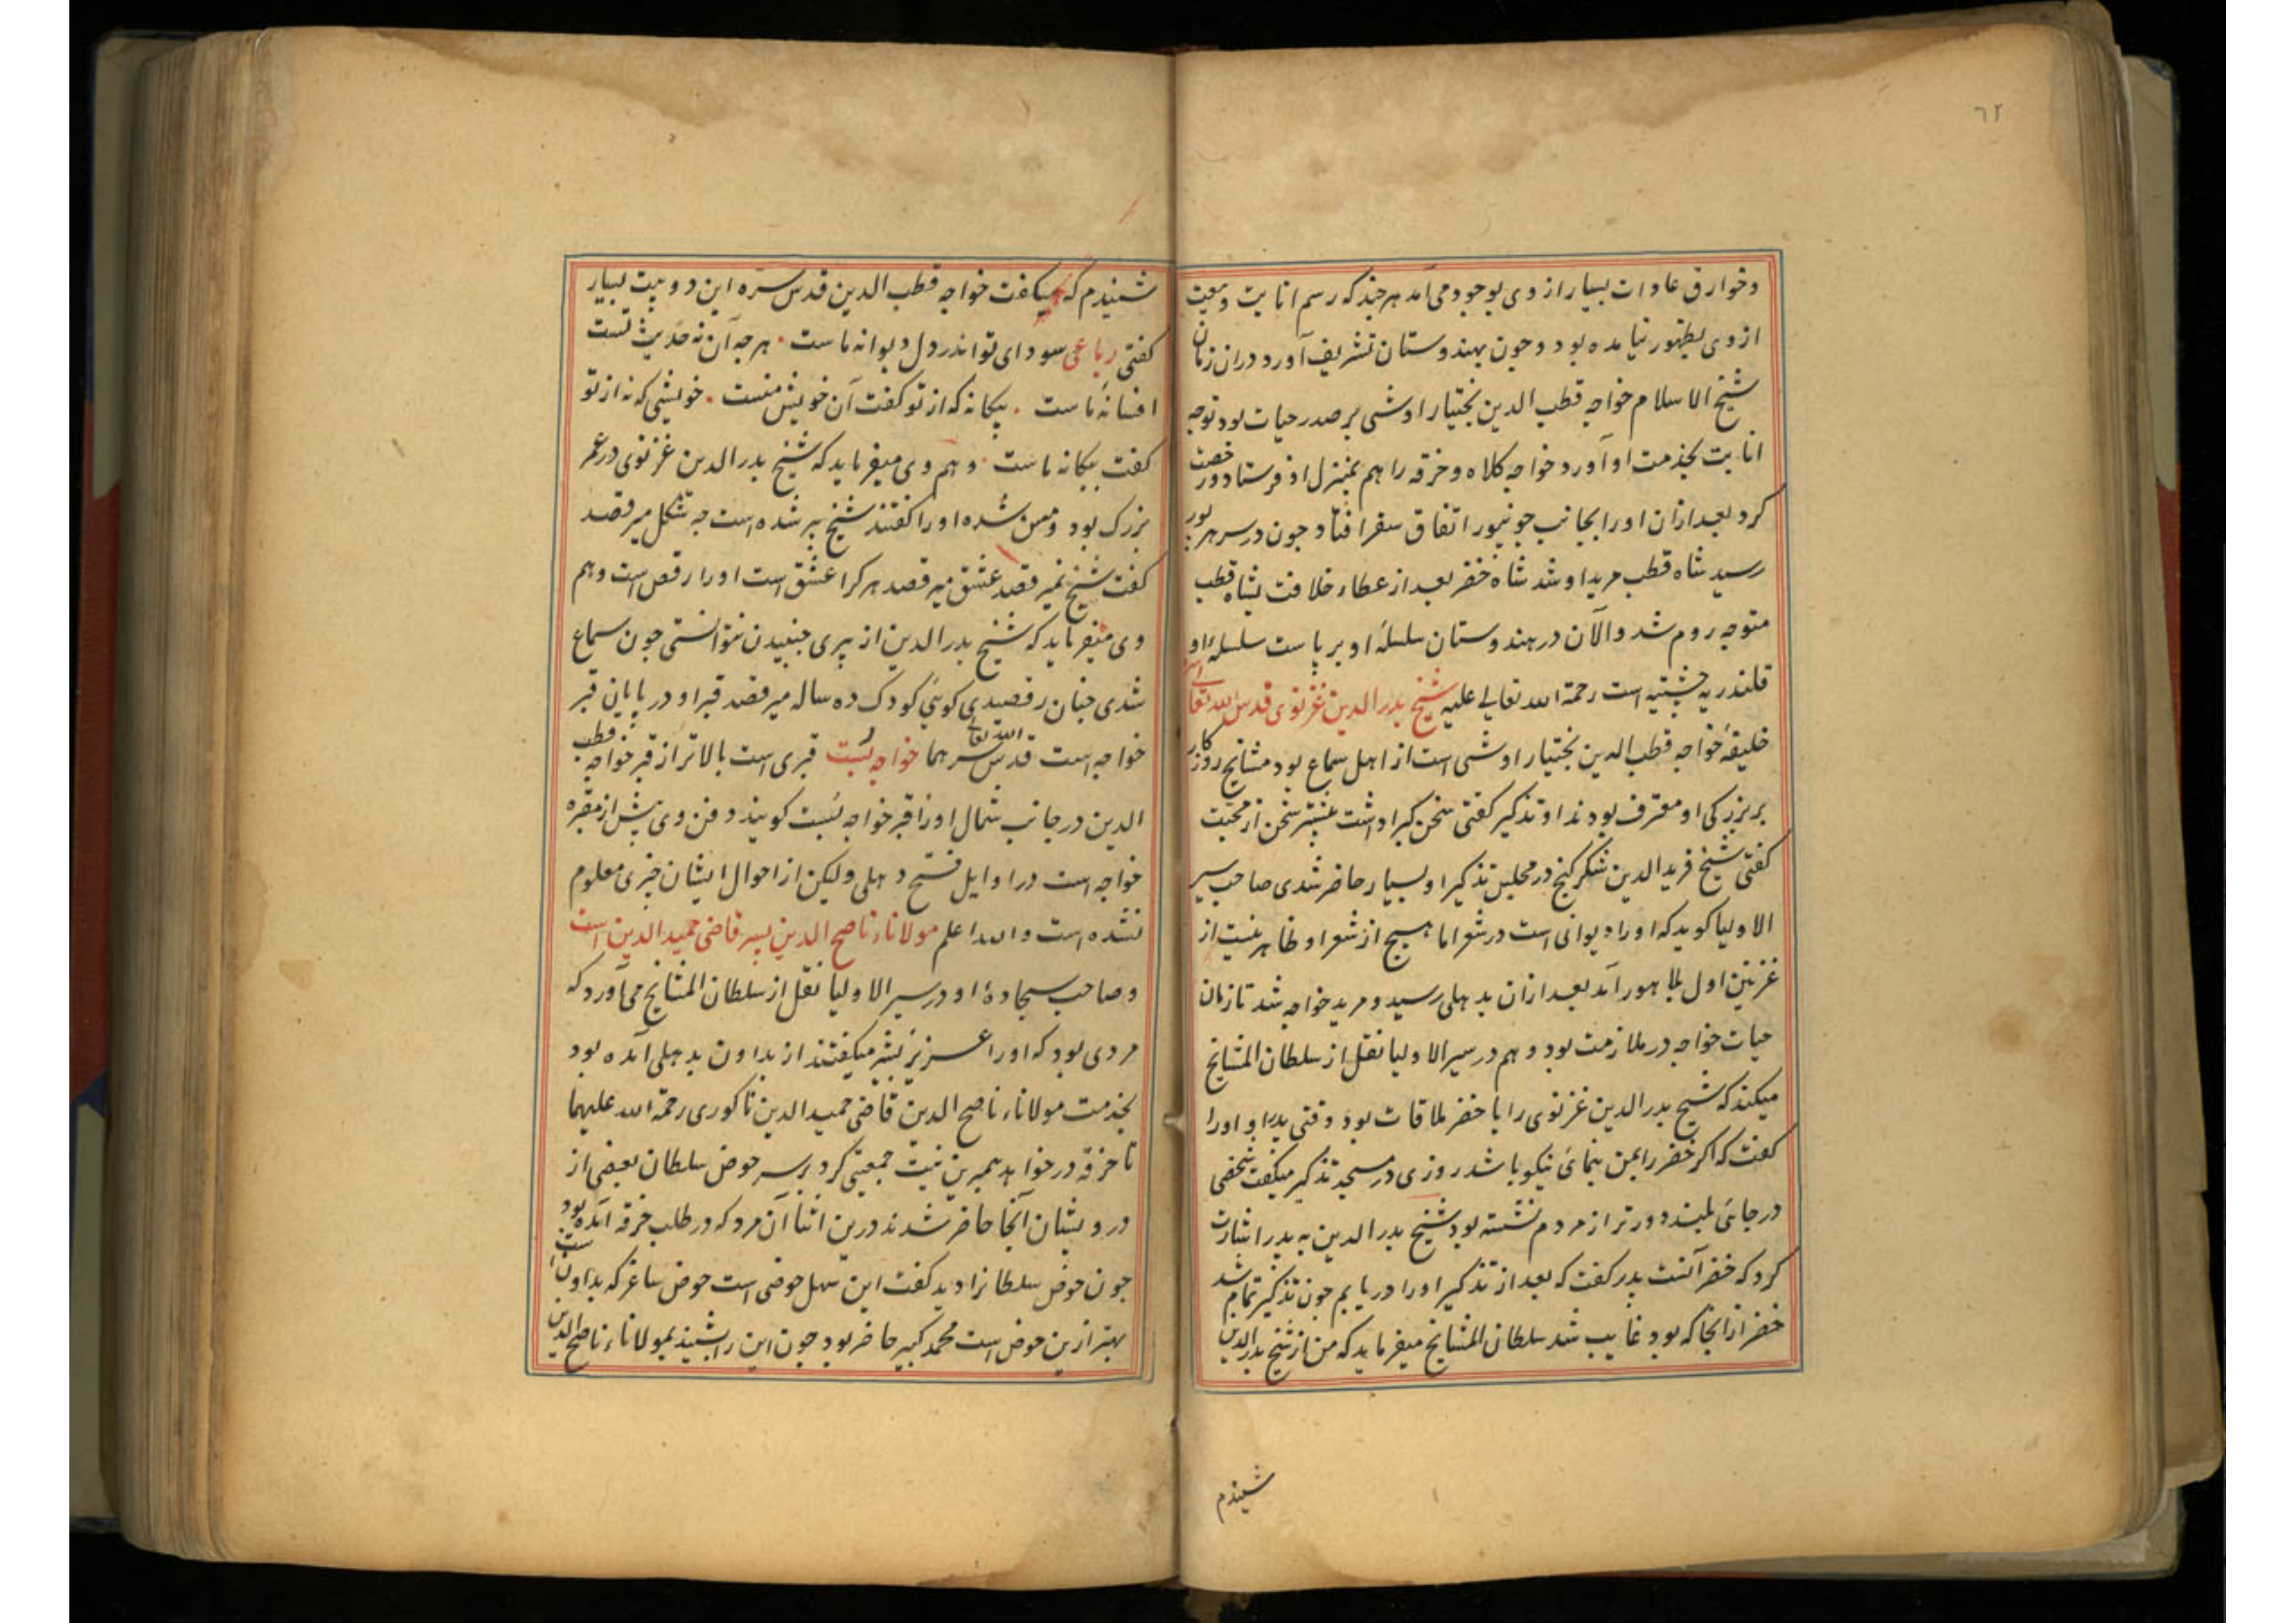 ٦٢
وخوارق عادات بسیار از وی بوجود می‌آمد هر چند که رسم انابت وبیعت
از وی بظهور نیامده بود وچون بهندوستان تشریف آورد دران زمان
شیخ الاسلام خواجه قطب الدین بختیار اوشی بر صدر حیات بود توجه
انابت بخدمت او آورد خواجه کلاه وخرقه را هم بمنزل او فرستاد ورخصت
کرد بعد ازان او را بجانب جونپور اتفاق سفر افتاد چون در سرهرپور
رسید شاه قطب مرید او شد شاه خضر بعد از عطاء خلافت بشاه قطب
متوجه روم شد والآن در هندوستان سلسلهٔ او برپاست سلسلهٔ او
قلندریه چشتیه است رحمة الله تعالی علیه شیخ بدر الدین غزنوی قدس الله تعالی
خلیفهٔ خواجه قطب الدین بختیار اوشی است از اهل سماع بود مشایخ روزکار
بر بزرکی او معترف بودند او تذکیر کفتی سخن کیرا داشت بیشتر سخن از محبت
کفتی شیخ فرید الدین شکر کنج در مجلس تذکیر او بسیار حاضر شدی صاحب سیر
الاولیا کوید که او را دیوانی است در شعر اما هیچ از شعر او ظاهر نیست از
غزنین اول بلاهور آمد بعد ازان بدهلی رسید ومرید خواجه شد تا زمان
حیات خواجه در ملازمت بود وهم در سیر الاولیا نقل از سلطان المشایخ
میکند که شیخ بدر الدین غزنوی را با خضر ملاقات بود وقتی پدر او او را
کفت که اکر خضر را بمن بنمائی نیکو باشد روزی در مسجد تذکیر میکفت شخصی
در جائی بلند دورتر از مردم نشسته بود شیخ بدر الدین به پدر اشارت
کرد که خضر آنست پدر کفت که بعد از تذکیر او را دریابم چون تذکیر تمام شد
خضر از انجا که بود غایب شد سلطان المشایخ میفرماید که من از شیخ بدر الدین
شنیدم
شنیدم که میکفت خواجه قطب الدین قدس سره این دو بیت بسیار
کفتی رباعی سودای تو اندر دل دیوانه ماست ٠ هر چه آن نه حدیث تست
افسانهٔ ماست ٠ بیکانه که از تو کفت آن خویش منست ٠ خویشی که نه از تو
کفت بیکانه ماست ٠ وهم وی میفرماید که شیخ بدر الدین غزنوی در عمر
بزرک بود ومسن شده او را کفتند شیخ پیر شده است چه شکل میرقصد
کفت شیخ نمیرقصد عشق میرقصد هر کرا عشق است او را رقص است وهم
وی میفرماید که شیخ بدر الدین از پیری جنبیدن نتوانستی چون سماع
شدی چنان رقصیدی کوئی کودک ده ساله میرقصد قبر او در پایان قبر
خواجه است قدس الله تعالی سرهما خواجه بست قبری است بالاتر از قبر خواجه قطب
الدین در جانب شمال او را قبر خواجه بست کویند دفن وی پیش از مقبره
خواجه است در اوایل فتح دهلی ولیکن از احوال ایشان خبری معلوم
نشده است والله اعلم مولاناء ناصح الدین پسر قاضی حمید الدین است
وصاحب سجادهٔ او در سیر الاولیا نقل از سلطان المشایخ می‌آورد که
مردی بود که او را عزیز بشیر میکفتند از بداون بدهلی آمده بود
بخدمت مولاناء ناصح الدین قاضی حمید الدین ناکوری رحمة الله علیهما
تا خرقه درخواهد بهمرین نیت جمعیتی کرد بر سر حوض سلطان بعضی از
درویشان آنجا حاضر شدند درین اثنا آن مرد که در طلب خرقه آمده بود
چون حوض سلطان را دید کفت این سهل حوضی است حوض ساغر که بداون است
بهتر ازین حوض است محمد کبیر حاضر بود چون این را شنید بمولاناء ناصح الدین